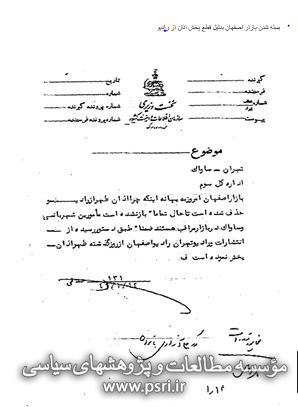 بسته شدن بازار اصفهان بدلیل قطع پخش اذان از رادیو
گیرنده
فرستنده
شماره
پیوست
تاریخ
شماره
شماره پرونده گیرنده
شماره پرونده فرستنده
نخست وزیری
سازمان اطلاعات و امنیت کشور
موضوع
تهران - ساواک
اداره کل سوم
بازار اصفهان امروز به بهانه اینکه چرا اذان ظهر از رادیو
حذف شده است تا حال تماما" باز نشده است مامورین شهربانی
و ساواک در بازار مراقب هستند ضمنا" طبق دستور رسیده از
انتشارات و رادیو تهران رادیو اصفهان از روز گذشته ظهر اذان
پخش نموده است
۱۳۱
مؤسسه مطالعات و پژوهشهای سیاسی
www.psri.ir